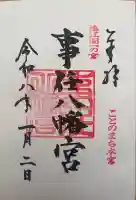 奉拝
遠江國一の宮
事任八幡宮
ことのまち八幡宮
令和八年一月二日